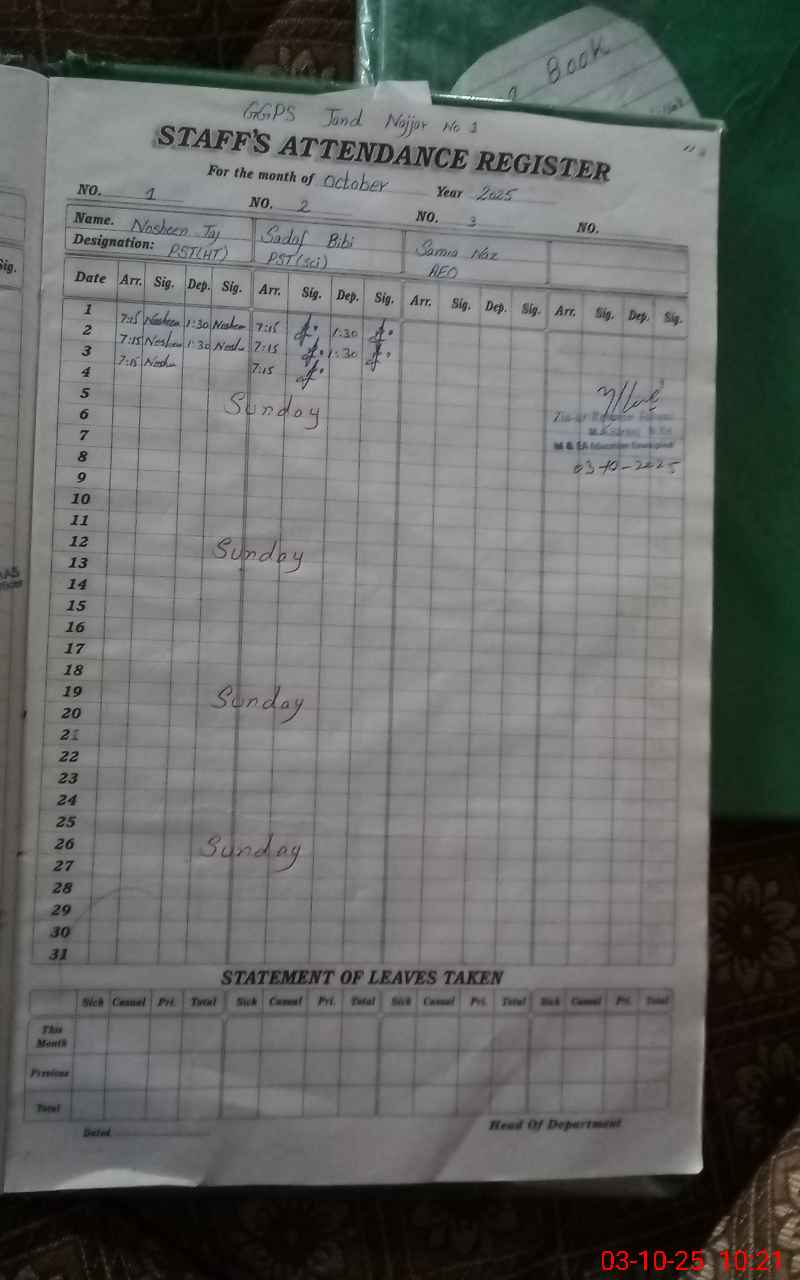 Book
GGPS Jand Najjar No 1
STAFF'S ATTENDANCE REGISTER
For the month of October Year 2025
NO. 1 NO. 2 NO. 3 NO.
Name. Nosheen Taj Sadaf Bibi Samia Naz
Designation: PST(HT) PST(Sci) AEO
Sig.
Date Arr. Sig. Dep. Sig. Arr. Sig. Dep. Sig. Arr. Sig. Dep. Sig. Arr. Sig. Dep. Sig.
1 7:15 Nosheen 1:30 Nosheen 7:15 1:30
2 7:15 Nosheen 1:30 7:15 1:30
3 7:15 7:15
4
5 Sunday
6
7
M & EA
8
03-10-2025
9
10
11
12 Sunday
13
14
15
16
17
18
19 Sunday
20
21
22
23
24
25
26 Sunday
27
28
29
30
31
STATEMENT OF LEAVES TAKEN
Sick Casual Pri. Total Sick Casual Pri. Total Sick Casual Pri. Total Sick Casual Pri. Total
This Month
Previous
Total
Dated
Head Of Department
03-10-25 10:21